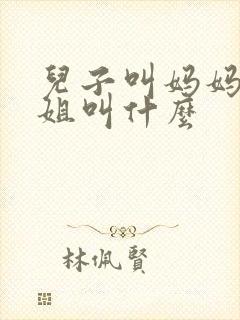 兒子叫妈妈
姐叫什麼
林佩賢